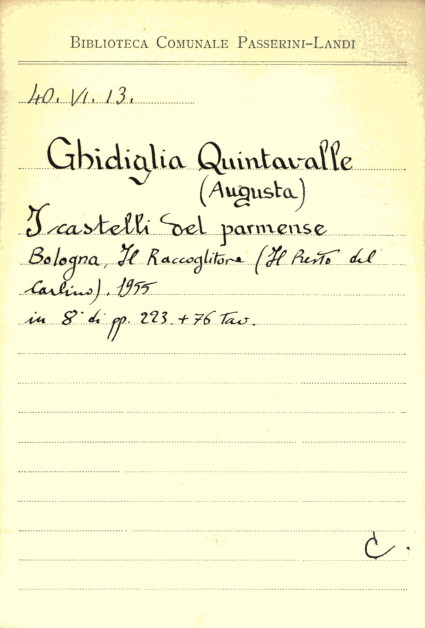 BIBLIOTECA COMUNALE PASSERINI-LANDI
40. VI. 13.
Ghidiglia Quintavalle
(Augusta)
I castelli del parmense
Bologna, Il Raccoglitore (Il Resto del
Carlino). 1955
in 8° di pp. 223. + 76 Tav.
C.